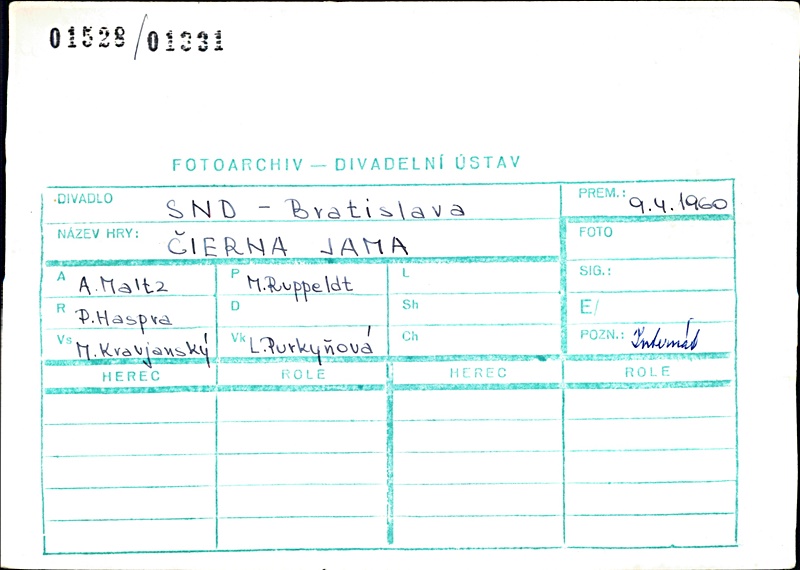 01528/01331
FOTOARCHIV — DIVADELNÍ ÚSTAV
DIVADLO SND - Bratislava
PREM.: 9.4.1960
NÁZEV HRY: ČIERNA JAMA
FOTO
A A. Maltz
P M. Ruppeldt
L
SIG.:
R P. Haspra
D
Sh
E/
Vs M. Kravjanský
Vk L. Purkyňová
Ch
POZN.: Internát
HEREC ROLE HEREC ROLE